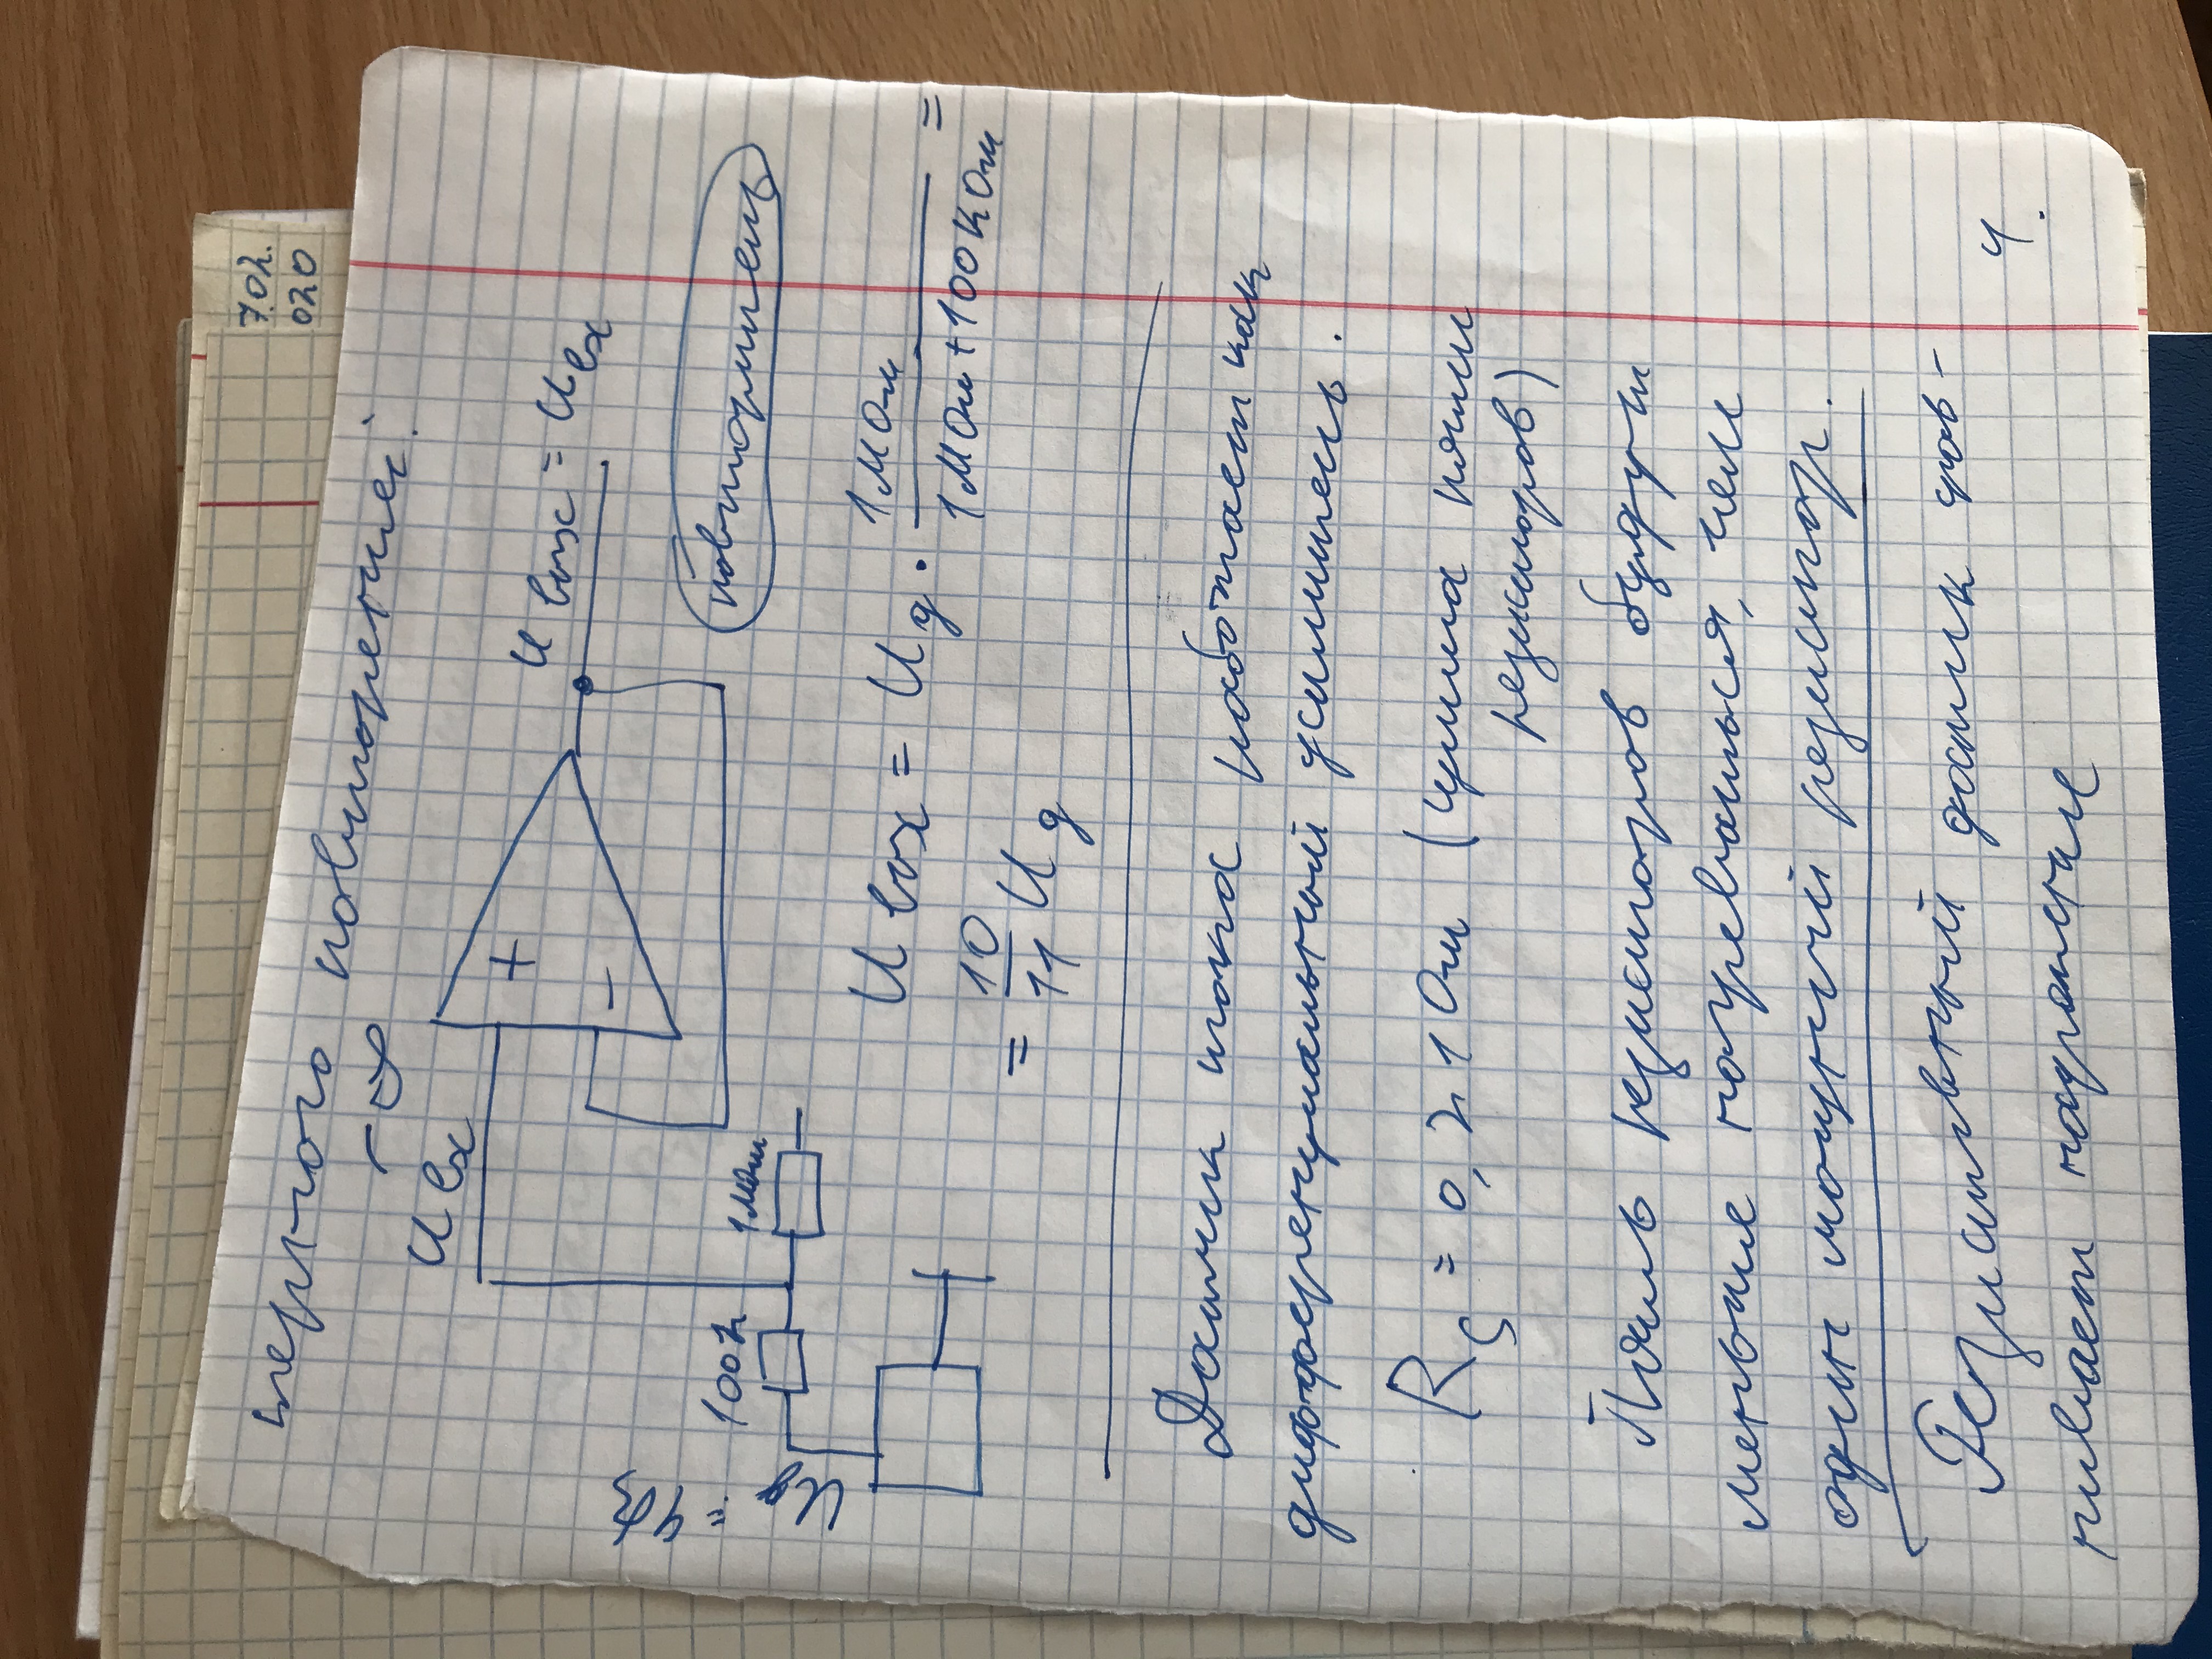 7.02.
020
терного повторения:
U вх
+
-
U вых = U вх
Uд = 4В
100к
1МОм
повторитель
U вых = Uд · 1МОм / 1МОм+100КОм =
= 10/11 Uд
Датчик тока работает как
дифференциальный усилитель.
RS = 0,21 Ом (цепочка пяти
резисторов)
Пять резисторов будут
меньше нагреваться, чем
один мощный резистор.
Резистивный датчик срав-
нивает напряжение
4.